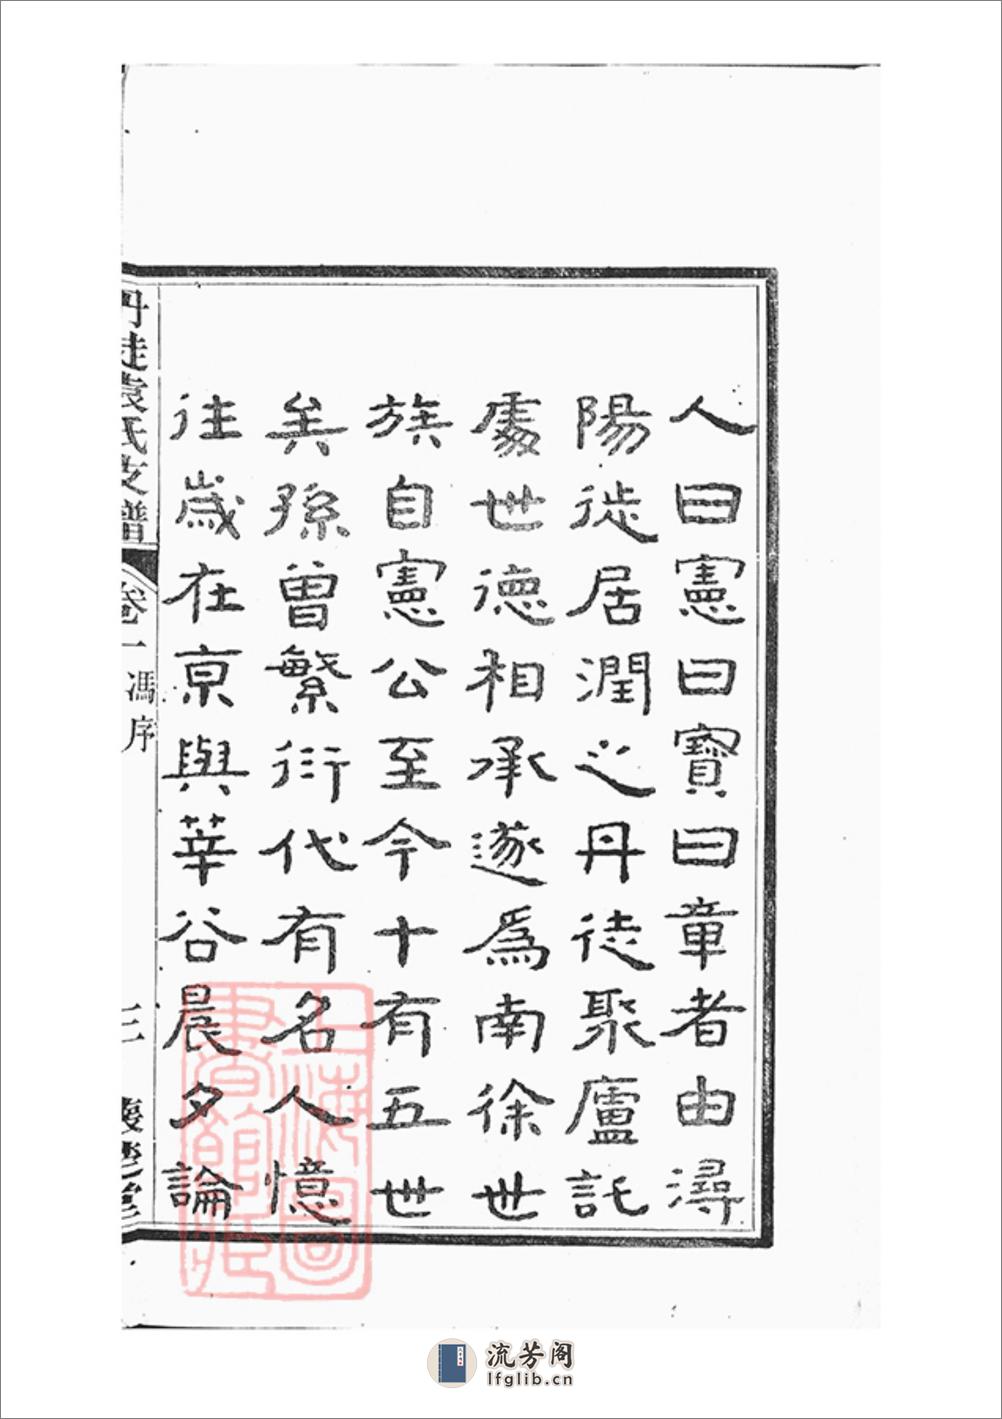 人曰憲曰寶曰章者由潯
陽徙居潤之丹徒聚廬託
處世德相承遂爲南徐世
族自憲公至今十有五世
矣孫曾繁衍代有名人憶
往歲在京與莘谷晨夕論
丹徒袁氏支譜
卷一
馮序
三
上海圖
書館藏
流芳阁
lfglib.cn